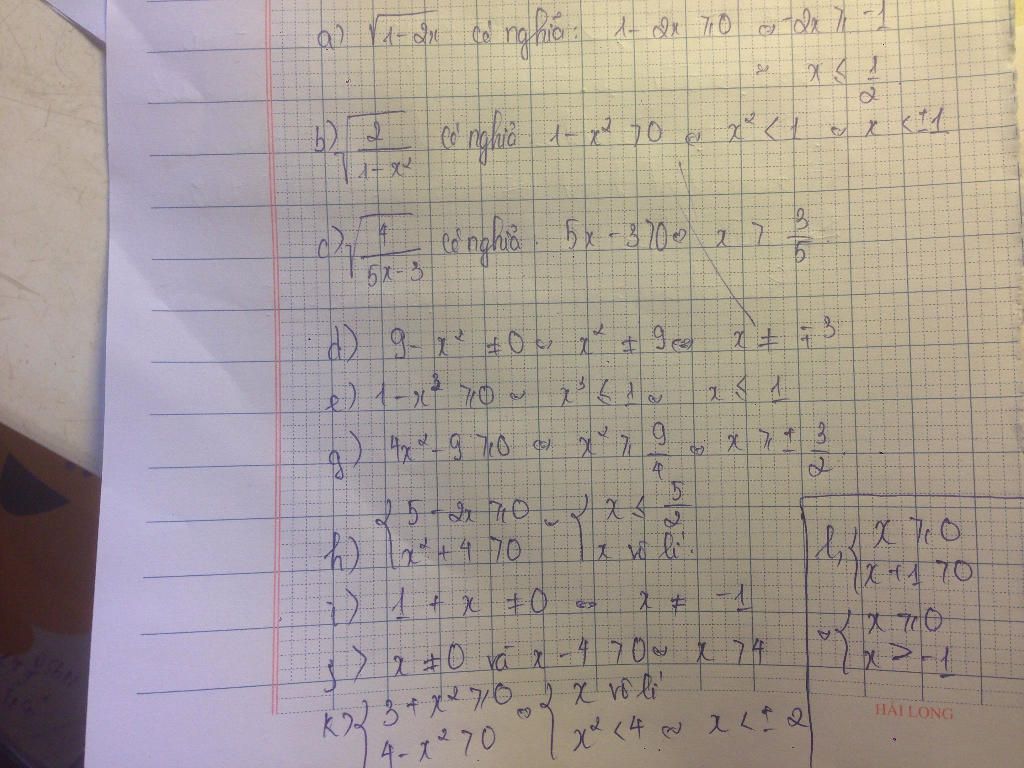 a) √(1-2x) có nghĩa: 1-2x ≥ 0 ⇔ -2x ≥ -1
⇔ x ≤ 1/2
b) √(2/(1-x²)) có nghĩa 1-x² > 0 ⇔ x² < 1 ⇔ x < ±1
c) √(4/(5x-3)) có nghĩa. 5x-3 > 0 ⇔ x > 3/5
d) 9-x² ≠ 0 ⇔ x² ≠ 9 ⇔ x ≠ ±3
e) 1-x³ ≥ 0 ⇔ x³ ≤ 1 ⇔ x ≤ 1
g) 4x²-9 ≥ 0 ⇔ x² ≥ 9/4 ⇔ x ≥ ± 3/2
h) { 5-2x ≥ 0 ⇔ { x ≤ 5/2
x²+4 > 0 x vô lí.
i) 1+x ≠ 0 ⇔ x ≠ -1
j) x ≠ 0 và x-4 > 0 ⇔ x > 4
k) { 3+x² ≥ 0 ⇔ { x vô lí
4-x² > 0 x² < 4 ⇔ x < ± 2
l, { x ≥ 0
x+1 > 0
⇔ { x ≥ 0
x > -1
HẢI LONG